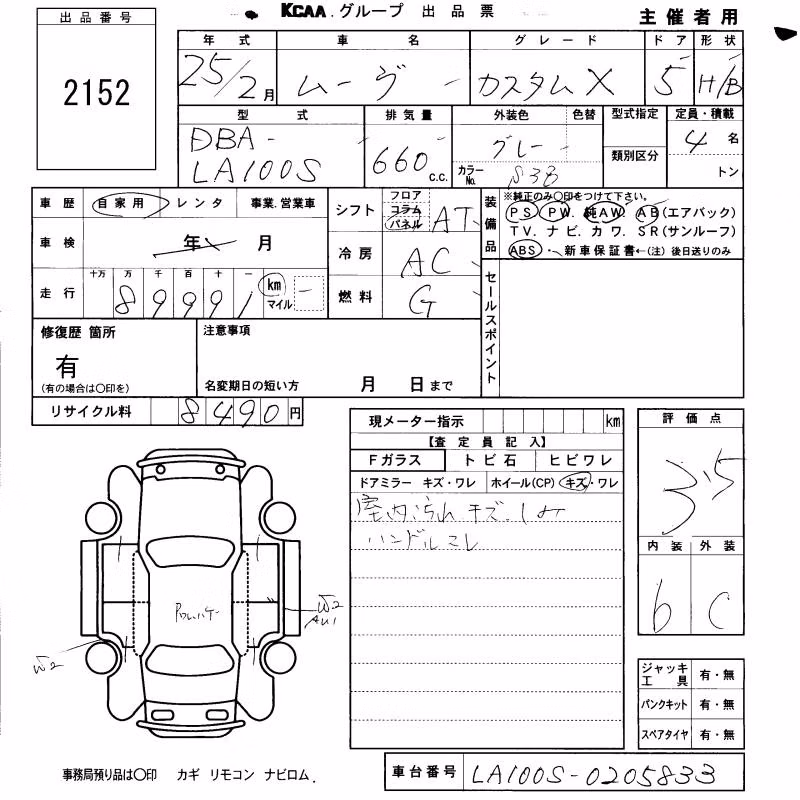 KCAA.グループ 出品票
主催者用
出品番号
2152
年式 車名 グレード ドア 形状
25/2月 ムーヴ カスタムX 5 H/B
型式 排気量 外装色 色替 型式指定 定員・積載
DBA-
LA100S
660 c.c.
グレー
カラーNo. S38
類別区分
4名
トン
車歴 自家用 レンタ 事業.営業車
車検 年 月
走行 十万 万 千 百 十 一
89991 km マイル
シフト フロア コラム パネル AT
冷房 AC
燃料 G
装備品 ※純正のみ〇印をつけて下さい。
PS PW. 純AW. AB(エアバック)
TV. ナビ. カワ. SR(サンルーフ)
ABS・新車保証書←(注)後日送りのみ
セールスポイント
修復歴 箇所
有
(有の場合は〇印を)
注意事項
名変期日の短い方 月 日まで
リサイクル料 8490円
現メーター指示 km
【査定員記入】
Fガラス トビ石 ヒビワレ
ドアミラー キズ・ワレ ホイール(CP) キズ・ワレ
室内汚れ キズ.シミ
ハンドルスレ
評価点
3.5
内装 外装
6 C
W2
AU1
W2
ジャッキ工具 有・無
パンクキット 有・無
スペアタイヤ 有・無
事務局預り品は〇印 カギ リモコン ナビロム.
車台番号 LA100S-0205833